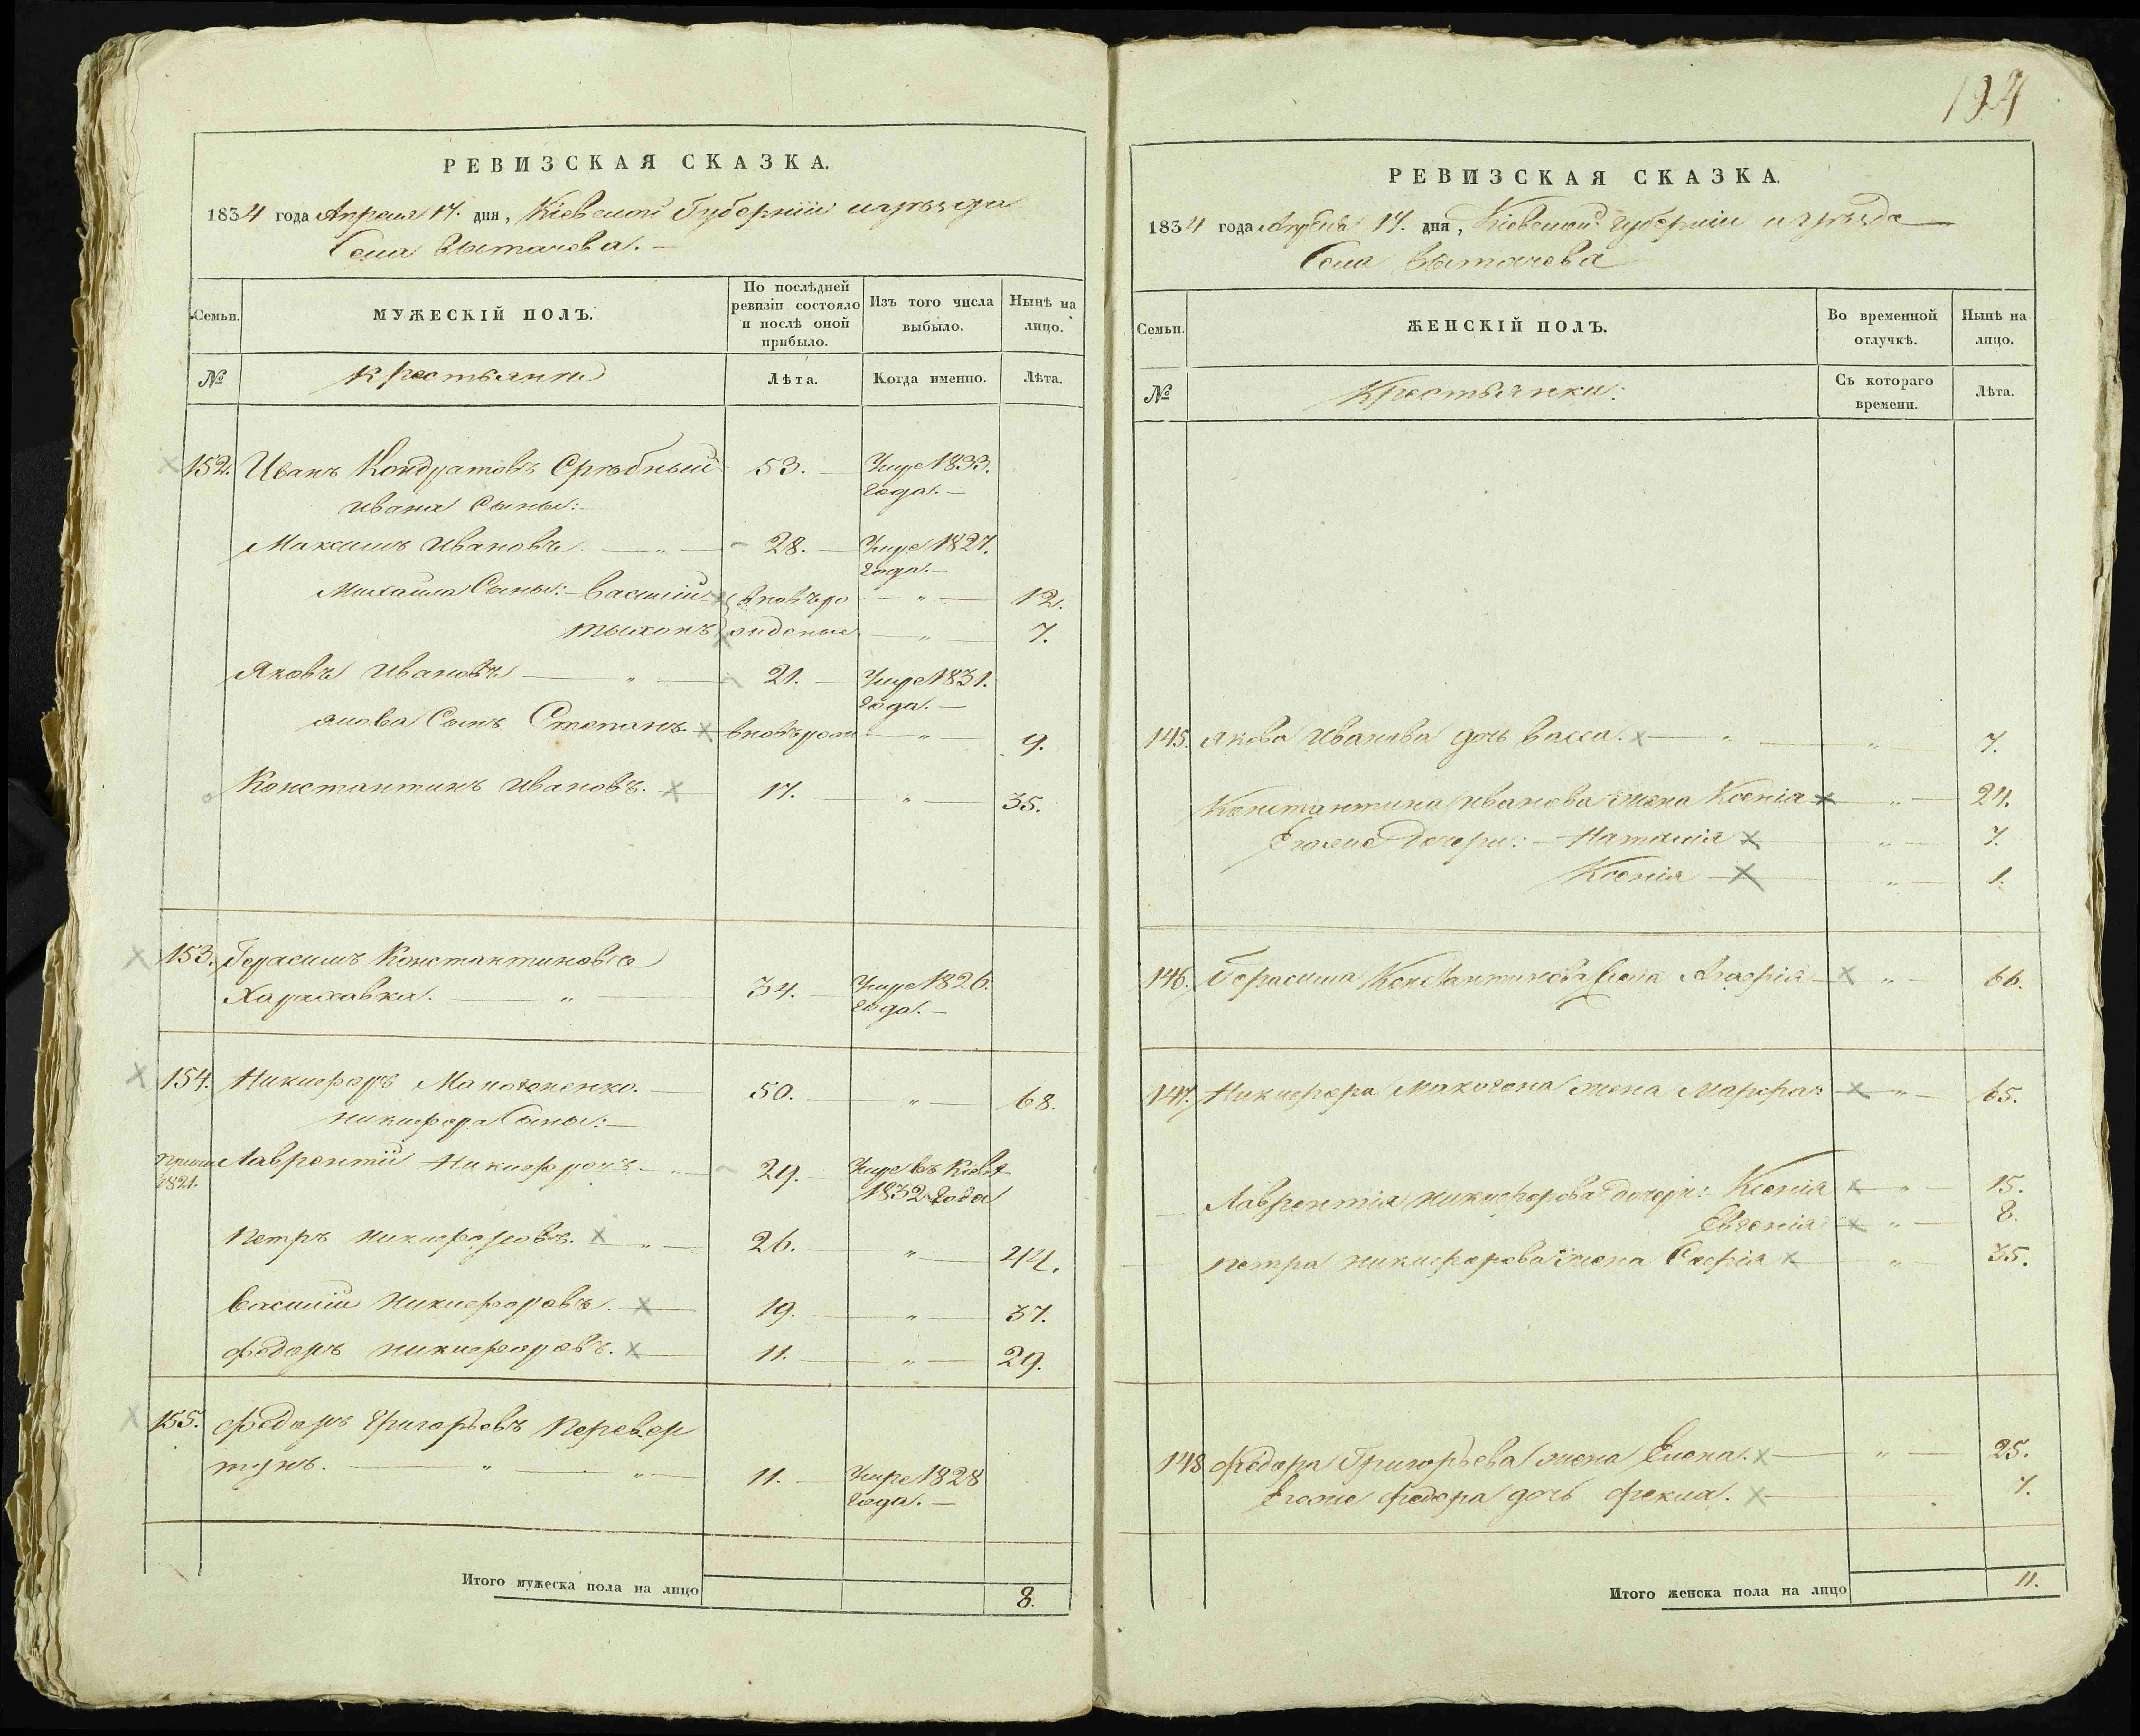 194
РЕВИЗСКАЯ СКАЗКА.
1834 года Апреля 17. дня, Кіевской Губерніи и уѣзда
Села Вытачева.
Семьи.
МУЖЕСКІЙ ПОЛЪ.
По послѣдней ревизіи состояло и послѣ оной прибыло.
Изъ того числа выбыло.
Нынѣ на лицо.
№
Крестьяни
Лѣта.
Когда именно.
Лѣта.
152. Иванъ Кондратовъ Срѣбный 53. Умре 1833. года.
Ивана Сыны:
Максимъ Ивановъ. 28. Умре 1827. года.
Михаила Сыны: Василій вновьро 12.
Тыхонъ жденые 7.
Яковъ Ивановъ 21. Умре 1831. года.
Якова Сынъ Степанъ вновьрож 9.
Константинъ Ивановъ. 17. 35.
153. Герасимъ Константиновъ
34. Умре 1826. года.
154. Никифоръ 50. 68.
Никифора Сыны:
1821. Лаврентій Никифоровъ 29. Умре въ Кіевѣ 1832 года
Петръ Никифоровъ. 26. 44.
Василій Никифоровъ. 19. 37.
Федоръ Никифоровъ. 11. 29.
155. Федоръ Григорьевъ Перевер
тунъ. 11. Умре 1828 года.
Итого мужеска пола на лицо 8.
РЕВИЗСКАЯ СКАЗКА.
1834 года Апреля 17. дня, Кіевской Губерніи и уѣзда
Села Вытачева
Семьи.
ЖЕНСКІЙ ПОЛЪ.
Во временной отлучкѣ.
Нынѣ на лицо.
№
Крестьянки.
Съ котораго времени.
Лѣта.
145. Якова Иванова дочь Васса. 7.
Константина Иванова жена Ксенія 24.
Егоже Дочери: Наталія 7.
Ксенія 1.
146. Герасима Константинова жена Агафія 66.
147. Никифора Макогона жена Марфа 65.
Лаврентія Никифорова дочери: Ксенія 15.
Евгенія 8.
Петра Никифорова жена Софія 35.
148 Федора Григорьева жена Елена. 25.
Егоже Федора дочь Фекла. 7.
Итого женска пола на лицо 11.